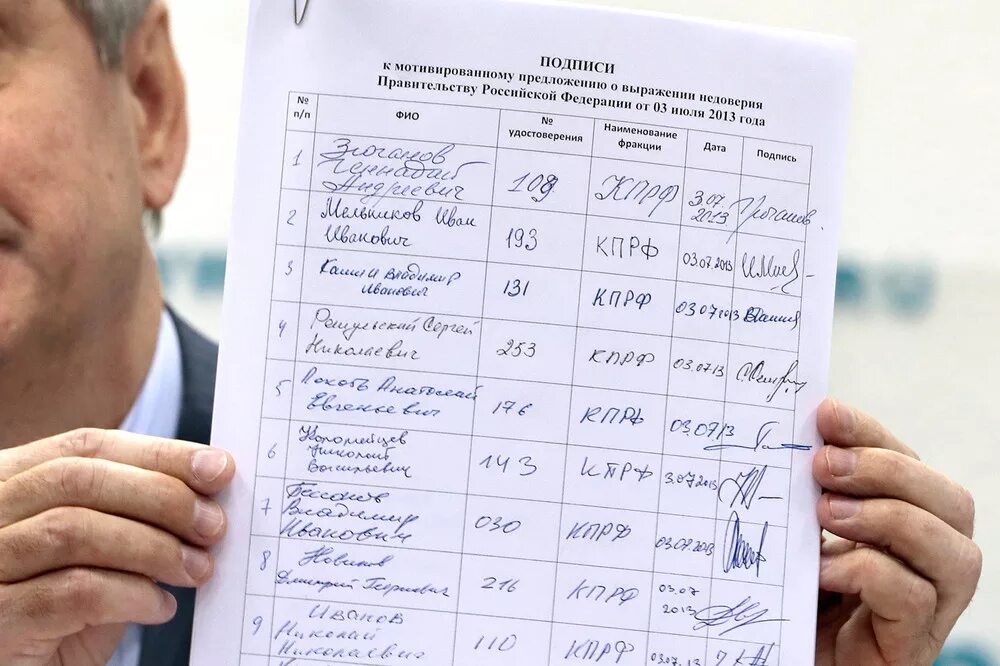 ПОДПИСИ
к мотивированному предложению о выражении недоверия
Правительству Российской Федерации от 03 июля 2013 года
№ п/п ФИО № удостоверения Наименование фракции Дата Подпись
1 Зюганов Геннадий Андреевич 108 КПРФ 3.07.2013 Зюганов
2 Мельников Иван Иванович 193 КПРФ 03.07.2013
3 Кашин Владимир Иванович 131 КПРФ 03.07.2013
4 Решульский Сергей Николаевич 253 КПРФ 03.07.13
5 Локоть Анатолий Евгеньевич 176 КПРФ 03.07.13
6 Коломейцев Николай Васильевич 143 КПРФ 3.07.2013
7 Бессонов Владимир Иванович 030 КПРФ 03.07.2013
8 Новиков Дмитрий Георгиевич 216 КПРФ 03.07 2013
9 Иванов Николай Николаевич 110 КПРФ 03.07.13